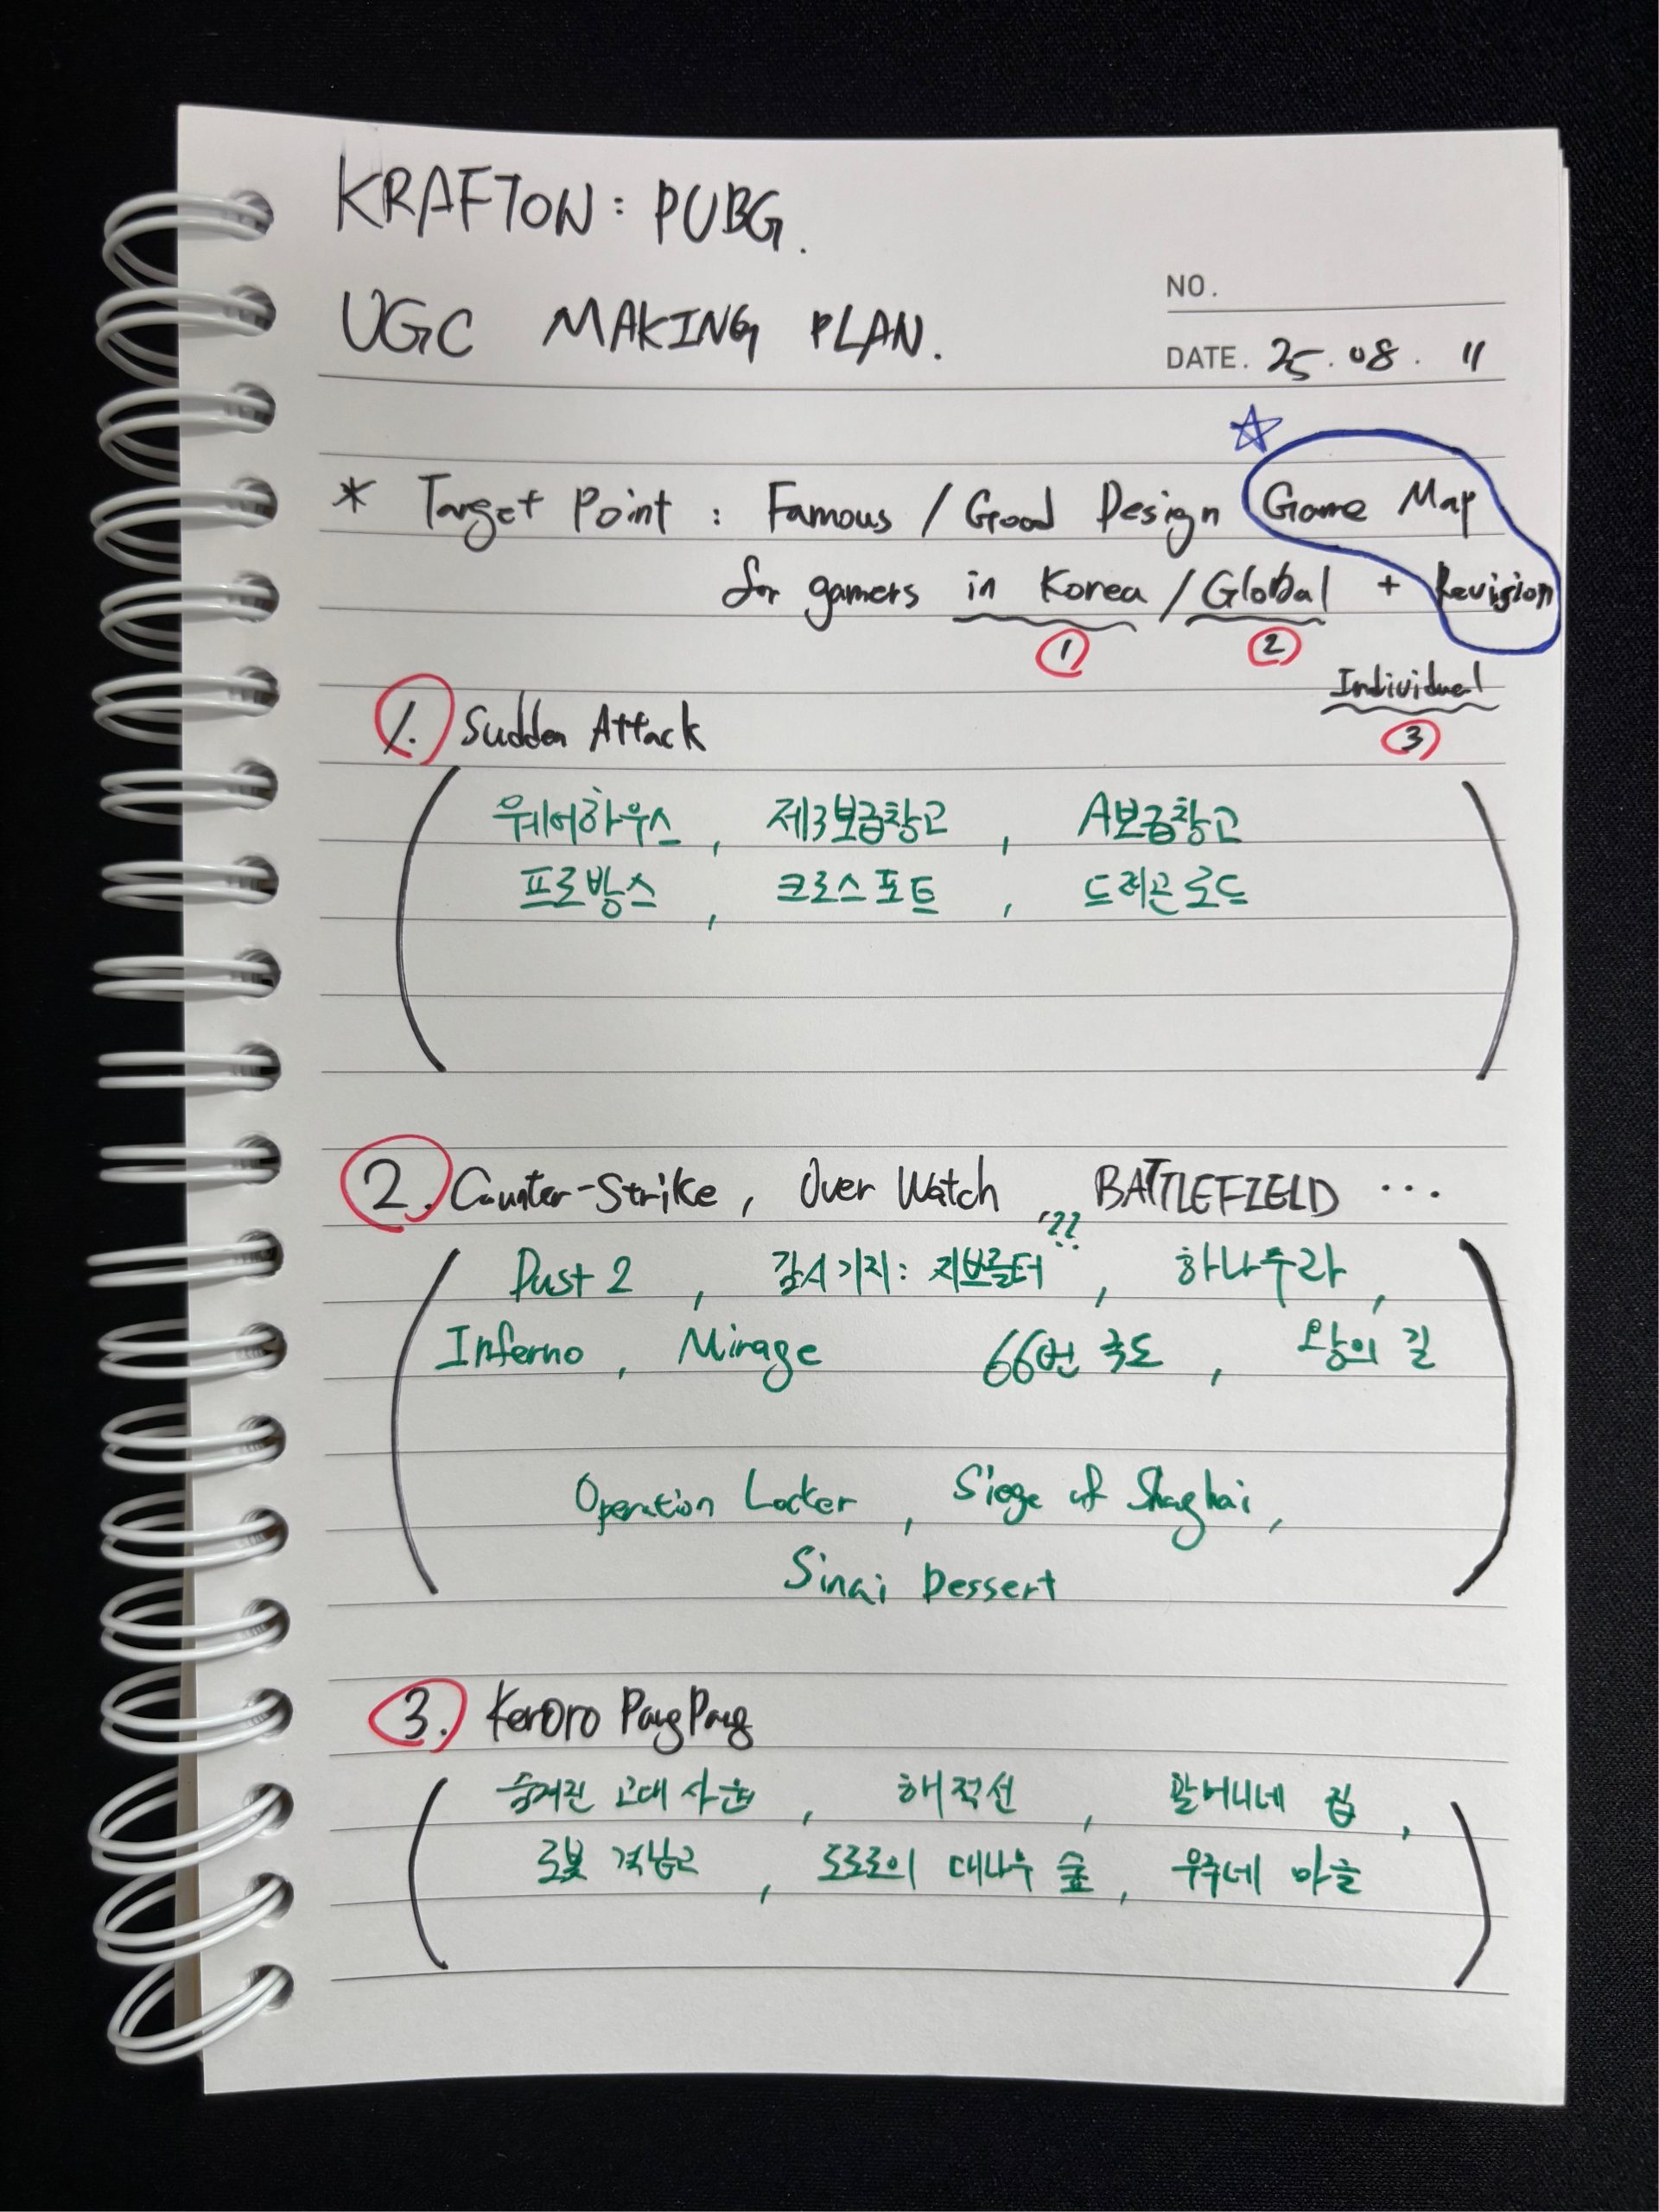 KRAFTON : PUBG.
UGC MAKING PLAN.
NO.
DATE. 25. 08. 11
* Target Point : Famous / Good Design Game Map
for gamers in Korea / Global + Revision
① ②
Individual
③
1. Sudden Attack
웨어하우스, 제3보급창고, A보급창고
프로방스, 크로스포트, 드래곤로드
2. Counter-Strike, Over Watch BATTLEFIELD ...
??
Dust 2, 감시기지: 지브롤터, 하나무라,
Inferno, Mirage 66번 국도, 왕의 길
Operation Locker, Siege of Shaghai,
Sinai Dessert
3. Keroro PangPang
숨겨진 고대 사원, 해적선, 할머니네 집,
로봇 격납고, 도로로의 대나무 숲, 우주네 마을